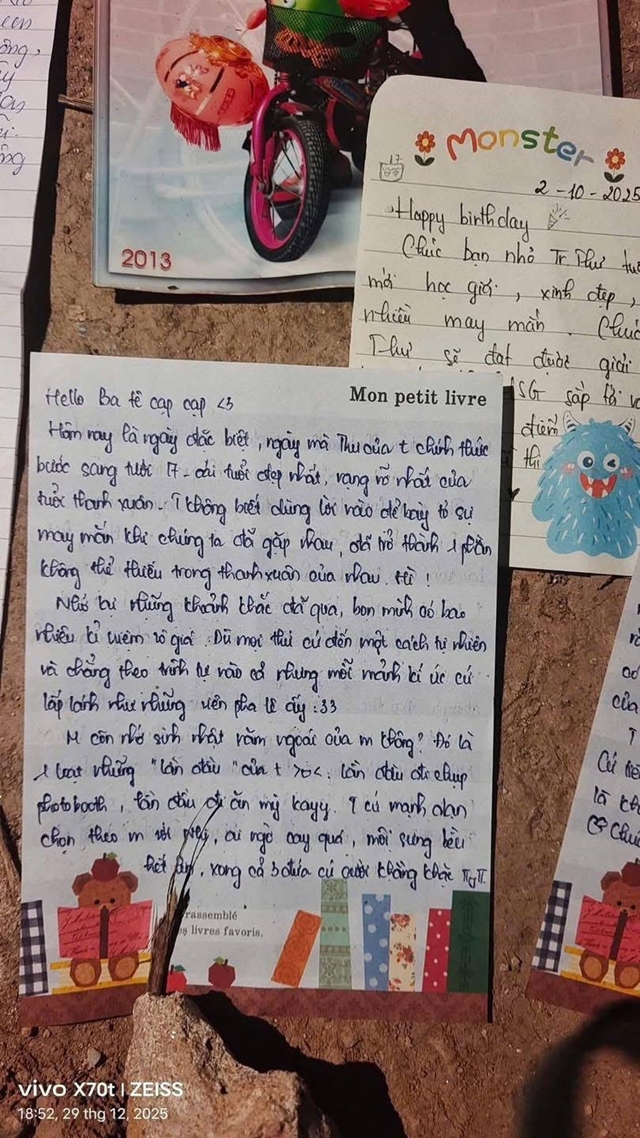 2013
Monster
17
2-10-2025
Happy birthday
Chúc bạn nhỏ Tr. Thư tuổi
mới học giỏi, xinh đẹp,
nhiều may mắn. Chúc
Thư sẽ đạt được giải
HSG sắp tới và
điểm
thi
Mon petit livre
Hello Ba tê cạp cạp <3
Hôm nay là ngày đặc biệt, ngày mà Thư của t chính thức
bước sang tuổi 17 - cái tuổi đẹp nhất, rạng rỡ nhất của
tuổi thanh xuân. T không biết dùng lời nào để bày tỏ sự
may mắn khi chúng ta đã gặp nhau, đã trở thành 1 phần
không thể thiếu trong thanh xuân của nhau. Hì!
Nhớ lại những khoảnh khắc đã qua, bọn mình có bao
nhiêu kỉ niệm vô giá. Dù mọi thứ cứ đến một cách tự nhiên
và chẳng theo trình tự nào cả nhưng mỗi mảnh kí ức cứ
lấp lánh như những viên pha lê ấy :33
M còn nhớ sinh nhật năm ngoái của m không? Đó là
1 loạt những "lần đầu" của t >o<. lần đầu đi chụp
photobooth, lần đầu đi ăn mỳ kayy. T cứ mạnh dạn
chọn theo m với, ai ngờ cay quá, môi sưng lều
hết lên, xong cả 3 đứa cứ cười khằng khặc
rassemblé
livres favoris.
của
T
Cứ
là
Chúc
vivo X70t | ZEISS
18:52, 29 thg 12, 2025